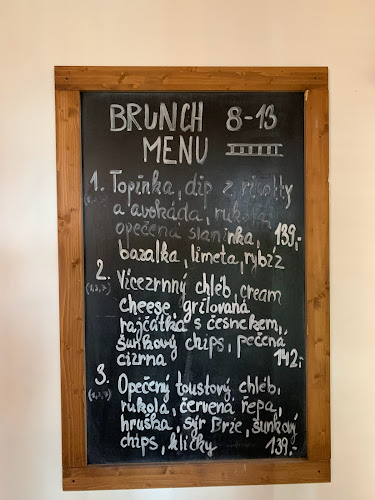 BRUNCH 8-13
MENU
1. Topinka, dip z ricotty
a avokáda, rukola,
opečená slaninka, 139,-
bazalka, limeta, rybíz
2. Vícezrnný chléb, cream
(1,7,9) cheese grilovaná
rajčátka s česnekem,
šunkový chips, pečená
cizrna 142,-
3. Opečený toustový, chléb,
rukola, červená řepa,
hruška, sýr Brie, šunkový
chips, klíčky 139,-